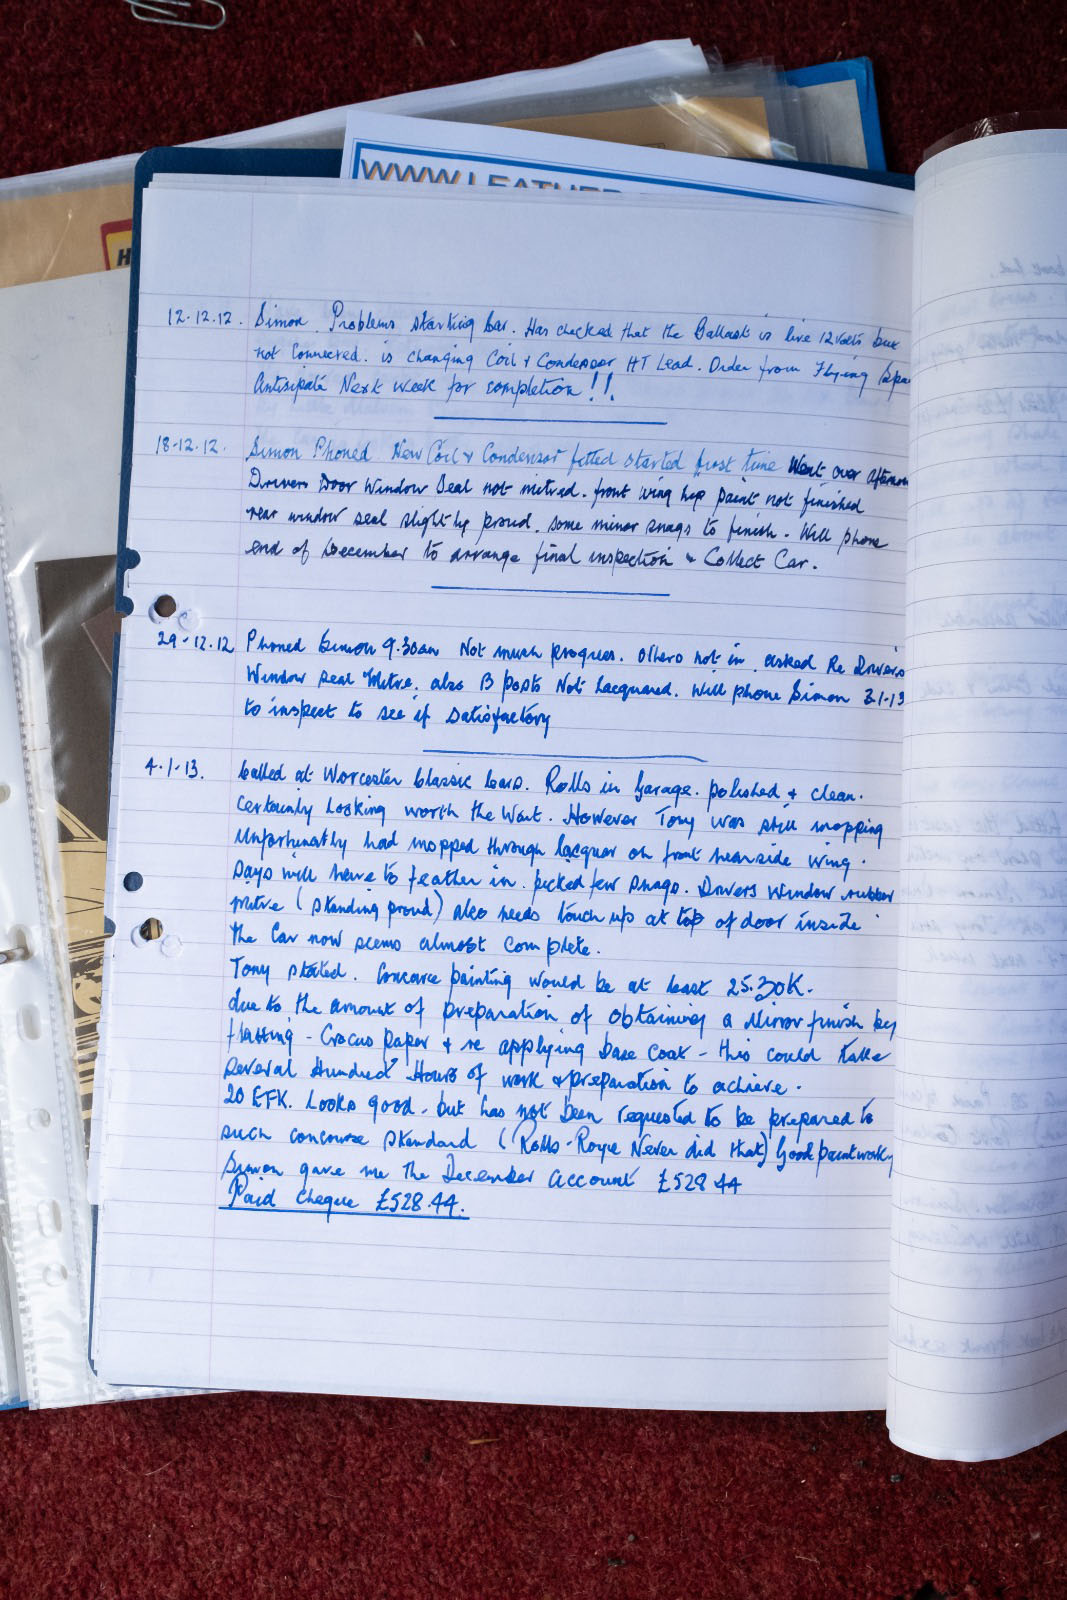 WWW.LEATHER
H
12.12.12. Simon. Problems starting Car. Has checked that the Ballast is live 12 volts but
not Connected. is changing Coil & Condensor HT Lead. Order from Flying Spa
Antisipate Next week for completion!!.
18-12.12. Simon Phoned New Coil & Condensor fitted started first time Went over afternoon
Drivers Door Window Seal not mitred. front wing top paint not finished
rear window seal slightly proud. some minor snags to finish. Will phone
end of December to arrange final inspection & Collect Car.
29-12.12 Phoned Simon 9.30am Not much progress. others not in. asked Re Drivers
Window seal Mitre. also B posts Not Lacquared. Will phone Simon 3-1-13
to inspect to see if satisfactory
4.1.13. Called at Worcester Classic Cars. Rolls in Garage. polished & clean.
Certainly Looking worth the Wait. However Tony was still mopping
Unfortunatly had mopped through lacquer on front nearside wing.
Says will have to feather in. picked few snags. Drivers Window rubber
mitre (standing proud) also needs touch up at top of door inside
the Car now seems almost complete.
Tony stated. Concorse painting would be at least 25.30K.
due to the amount of preparation of obtaining a Mirror finish by
flatting - Crocus paper & re applying base coat - this could take
several Hundred Hours of work & preparation to achieve.
20 EFK. Looks good. but has not been requested to be prepared to
such concourse standard (Rolls-Royce Never did that) Good paintwork
Simon gave me the December account £528.44
Paid cheque £528.44.